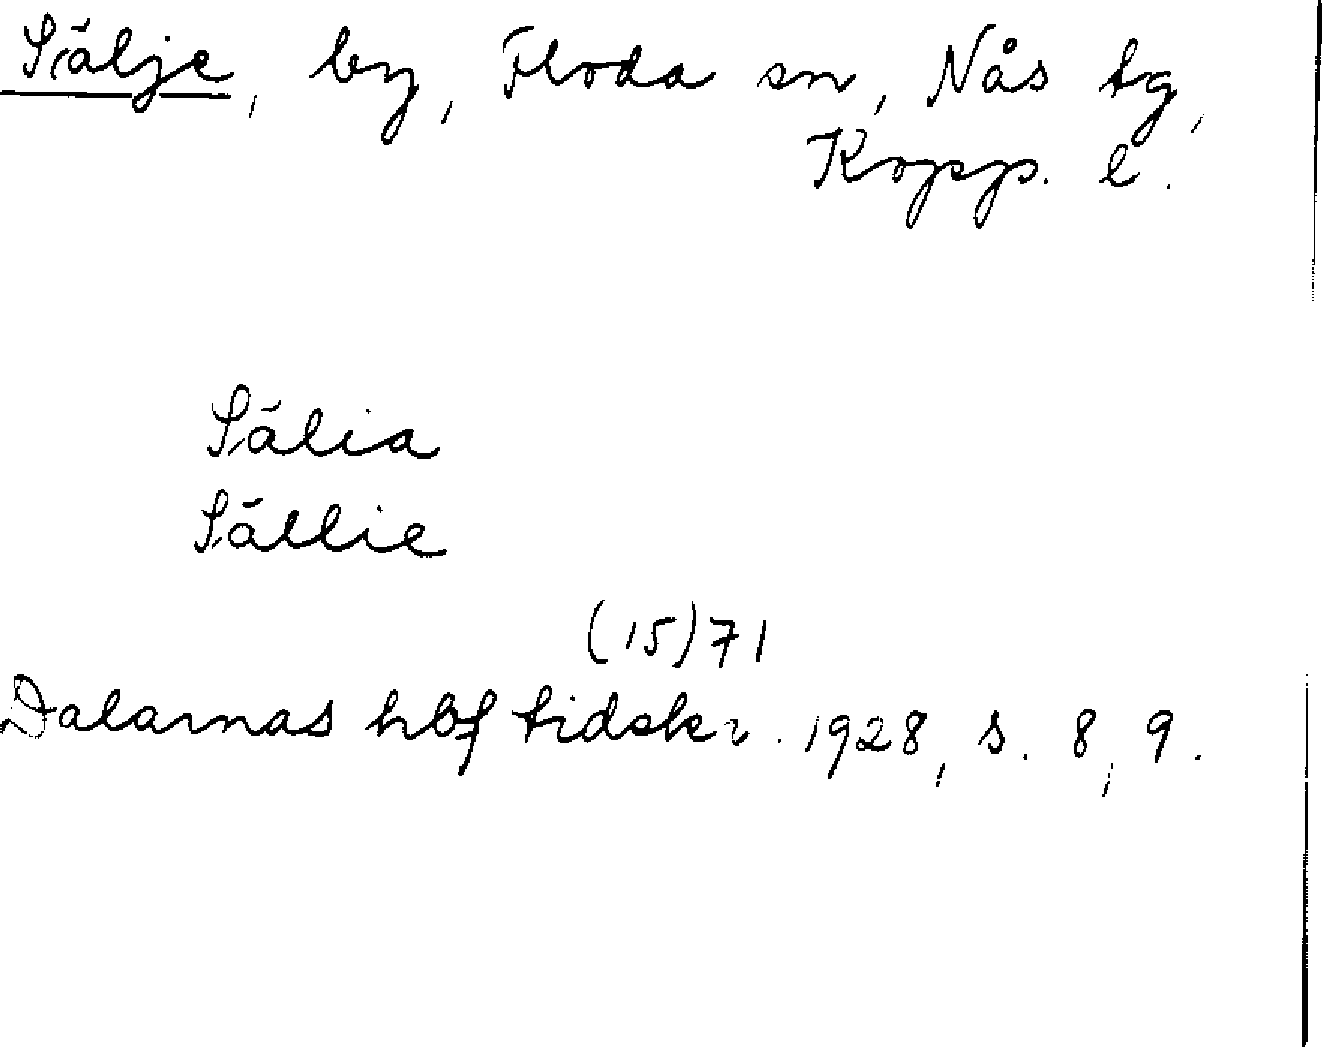 Sälje, by, Floda sn, Nås tg,
Kopp. l.
Sälia
Sällie
(15)71
Dalarnas hbf tidskr. 1928, s. 8, 9.